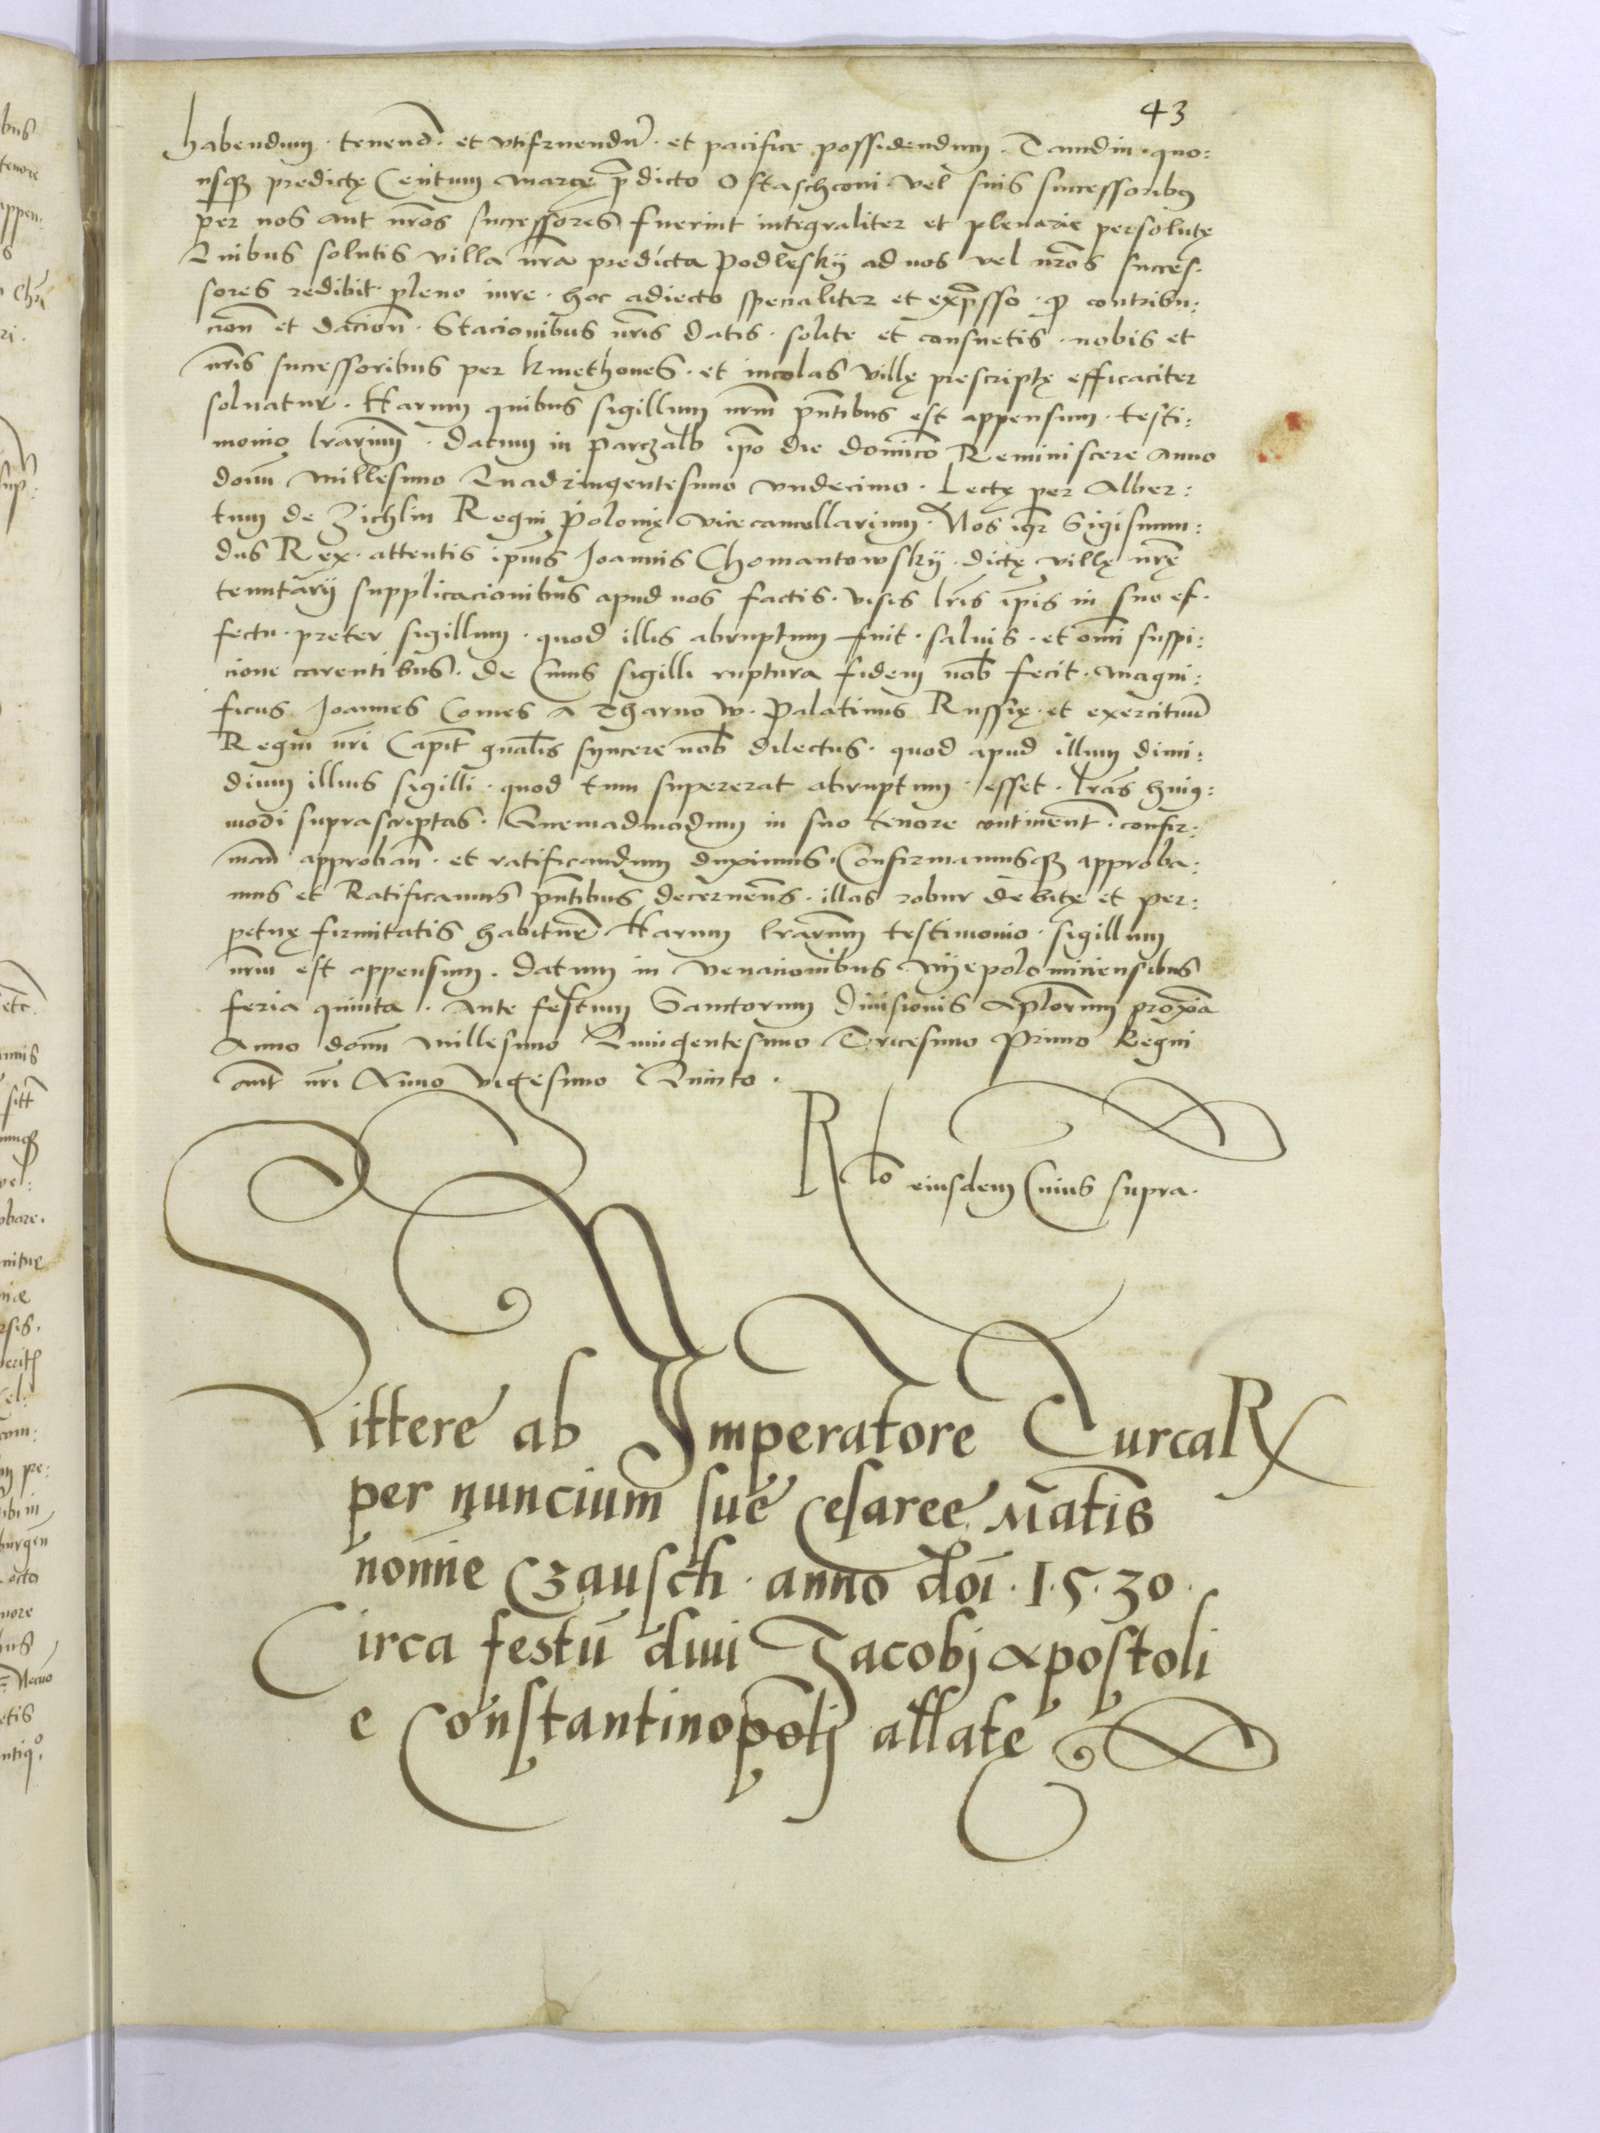 43
habendum · tenend̄ · et vtifruendū · et pacifice possidendum · Tamdiu · quo:
usq3 predictę Centum marcę p̄dicto Ostaschconi vel suis successorib9
per nos aut nr̄os successores fuerint integraliter et plenarie persolutę
Quibus solutis villa nr̄a predicta Podlesky ad nos vel nr̄os succes:
sores redibit pleno iure · hoc adiecto specialiter et exp̄sso · ꝙ contribu:
cion̄ et dacion̄ · Stacionibus nr̄is datis · solite et consuetis · nobis et
nr̄is successoribus per kmethones · et incolas villę prescriptę efficaciter
soluatur · Harum quibus sigillum nr̄m pn̄tibus est appensum · testi:
monio lr̄arum · Datum in Parczalb ip̄o die dominico Reminiscere Anno
domī Millesimo Quadringentesimo vndecimo · Lectę per Alber:
tum de Zichlin Regni Polonię vicecancellarium · Nos igr̄ Sigismun:
dus Rex · attentis ip̄ius Joannis Chomantowsky · dictę villę nr̄ę
tenutarij supplicacionibus apud nos factis · visis lr̄is ip̄is in suo ef:
fectu · preter sigillum · quod illis abruptum fuit · saluis · et om̄i suspi:
cione carentibus · de Cuius sigilli ruptura fidem nob̄ fecit · magni:
ficus Joannes Comes a Tharnow · Palatinus Russię · et exercituū
Regni nr̄i Capit̄ gn̄alis syncere nob̄ dilectus · quod apud illum dimi:
dium illius sigilli · quod tum supererat abruptum esset · lr̄as hui9:
modi suprascriptas · Quemadmodum in suo tenore continent̄ · confir:
man̄ approban̄ · et ratificandum duximus · Confirmamusq3 approba:
mus et Ratificamus pn̄tibus decernen̄s · illas robur debitę et per:
petuę firmitatis habitur̄ Harum lr̄arum testimonio · sigillum
nr̄m est appensum · Datum in venacionibus Nyepolomiciensibus
feria quinta · Ante festum Sanctorum Diuisionis Ap̄lorum proxīa
Anno domī Millesimo Quingentesimo Tricesimo Primo Regni
aut̄ nr̄i Anno vigesimo Quinto ·
Rłō eiusdem Cuius supra ·
Littere ab Imperatore TurcaR
per nuncium sue Cesaree M̄atis
nomīe Czausch · anno doī · 1·5·30 ·
Circa festū diui Jacobj Apostoli
e Constantinopolj allate